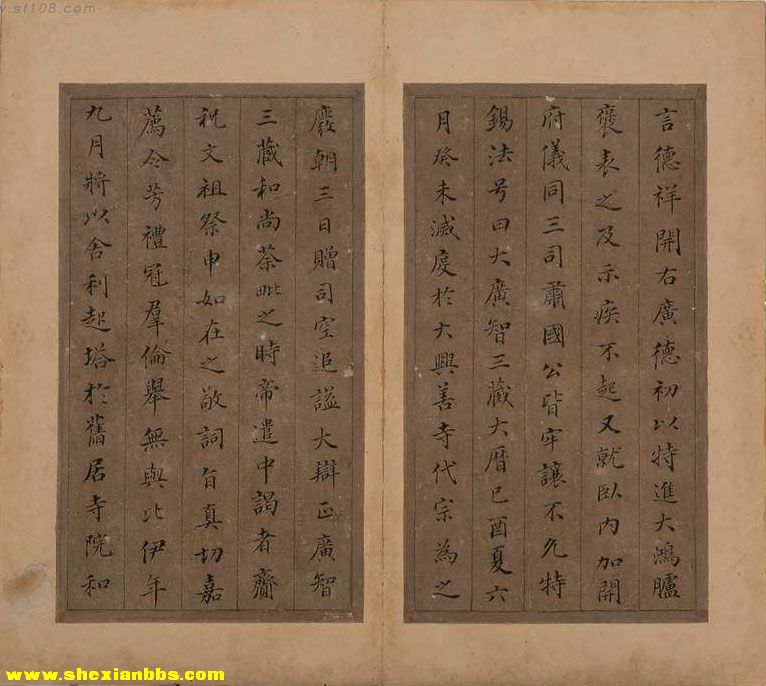 y.sf108.com
言德祥開右廣德初以特進大鴻臚
襃表之及示疾不起又就臥内加開
府儀同三司肅國公皆牢讓不允特
錫法号曰大廣智三藏大曆己酉夏六
月癸未滅度於大興善寺代宗為之
廢朝三日贈司空追諡大辯正廣智
三藏和尚荼毗之時帝遣中謁者齎
祝文祖祭申如在之敬詞旨真切嘉
薦令芳禮冠羣倫舉無與比伊年
九月將以舍利起塔於舊居寺院和
www.shexianbbs.com